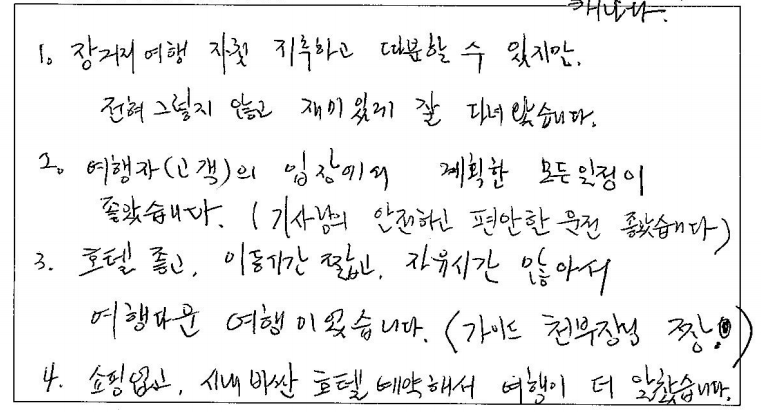 캐나다.
1. 장거리 여행 자칫 지루하고 따분할 수 있지만,
전혀 그렇지 않고 재미있게 잘 다녀 왔습니다.
2. 여행자(고객)의 입장에서 계획한 모든일정이
좋았습니다. (기사님의 안전하고 편안한 운전 좋았습니다)
3. 호텔 좋고, 이동시간 짧고, 자유시간 많아서
여행다운 여행이었습니다. (가이드 천부장님 짱!)
4. 쇼핑없고, 시내 비싼 호텔 예약해서 여행이 더 알찼습니다.